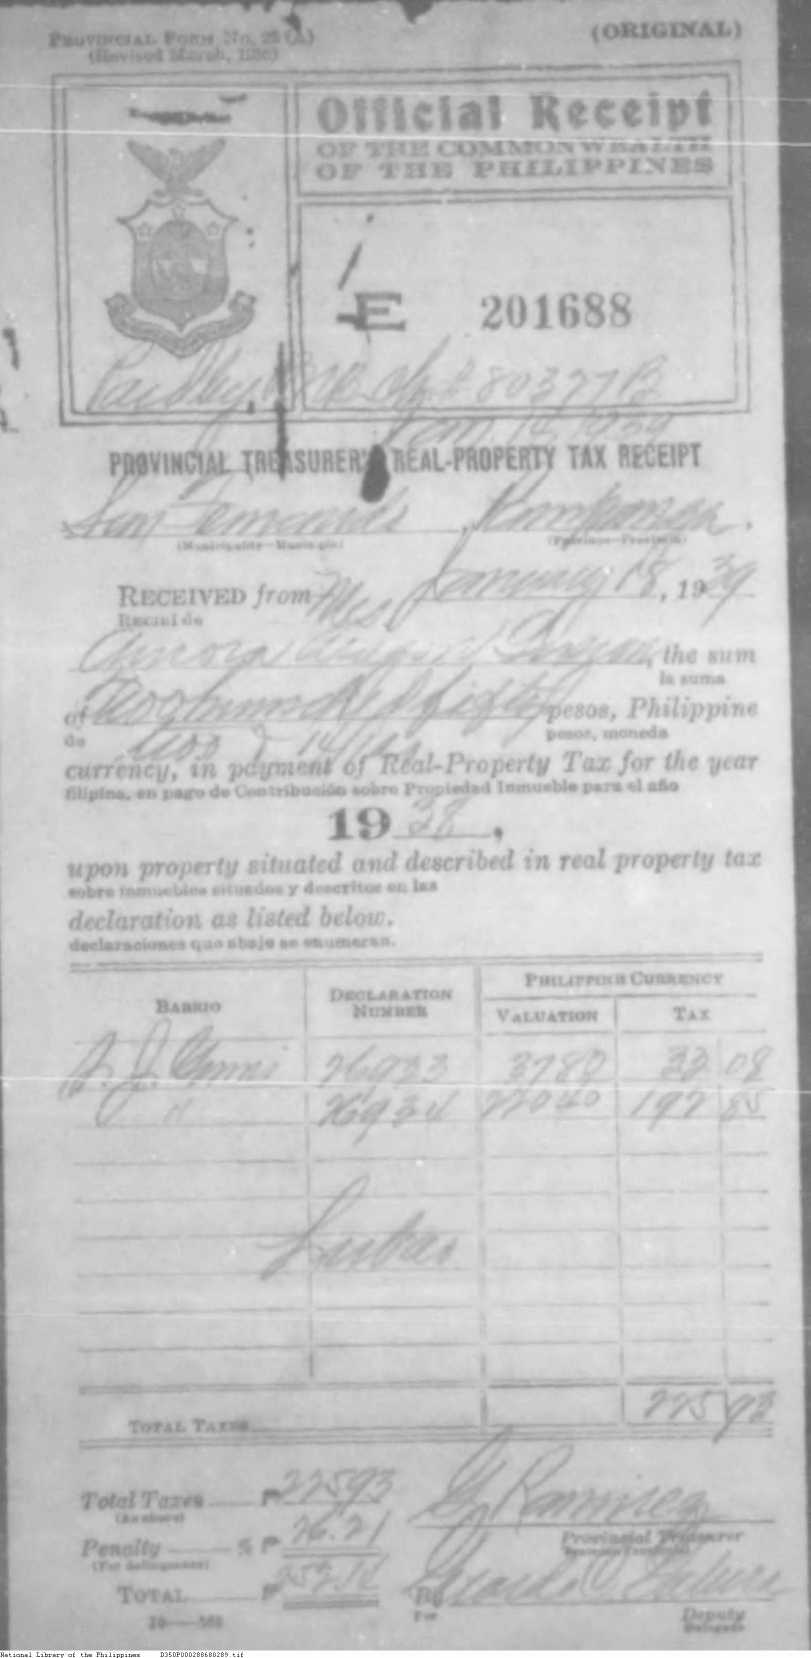 PROVINCIAL FORM No. 25 (A)
(Revised March, 1936)
(ORIGINAL)
Official Receipt
OF THE COMMONWEALTH
OF THE PHILIPPINES
E 201688
80327 B
Jan 18, 1939
PROVINCIAL TREASURER'S REAL-PROPERTY TAX RECEIPT
San Fernando, Pampanga.
(Municipality—Municipio) (Province—Provincia)
January 18, 1939
RECEIVED from Mrs.
Recibí de
Aurora, the sum
la suma
of Two hundred fifty pesos, Philippine
de pesos, moneda
currency, in payment of Real-Property Tax for the year
filipina, en pago de Contribución sobre Propiedad Inmueble para el año
1938,
upon property situated and described in real property tax
sobre inmuebles situados y descritos en las
declaration as listed below.
declaraciones que abajo se enumeran.
BARRIO DECLARATION NUMBER PHILIPPINE CURRENCY
VALUATION TAX
26933 3780 33 08
" 26934 22040 192 85
TOTAL TAXES 225 93
Total Taxes ₱ 225 93
(As above)
G. Ramirez
Provincial Treasurer
Penalty % ₱ 26.21
(For delinquency)
TOTAL ₱ 252.14
By
For
Deputy
Delegado
National Library of the Philippines D350P000288680289.tif